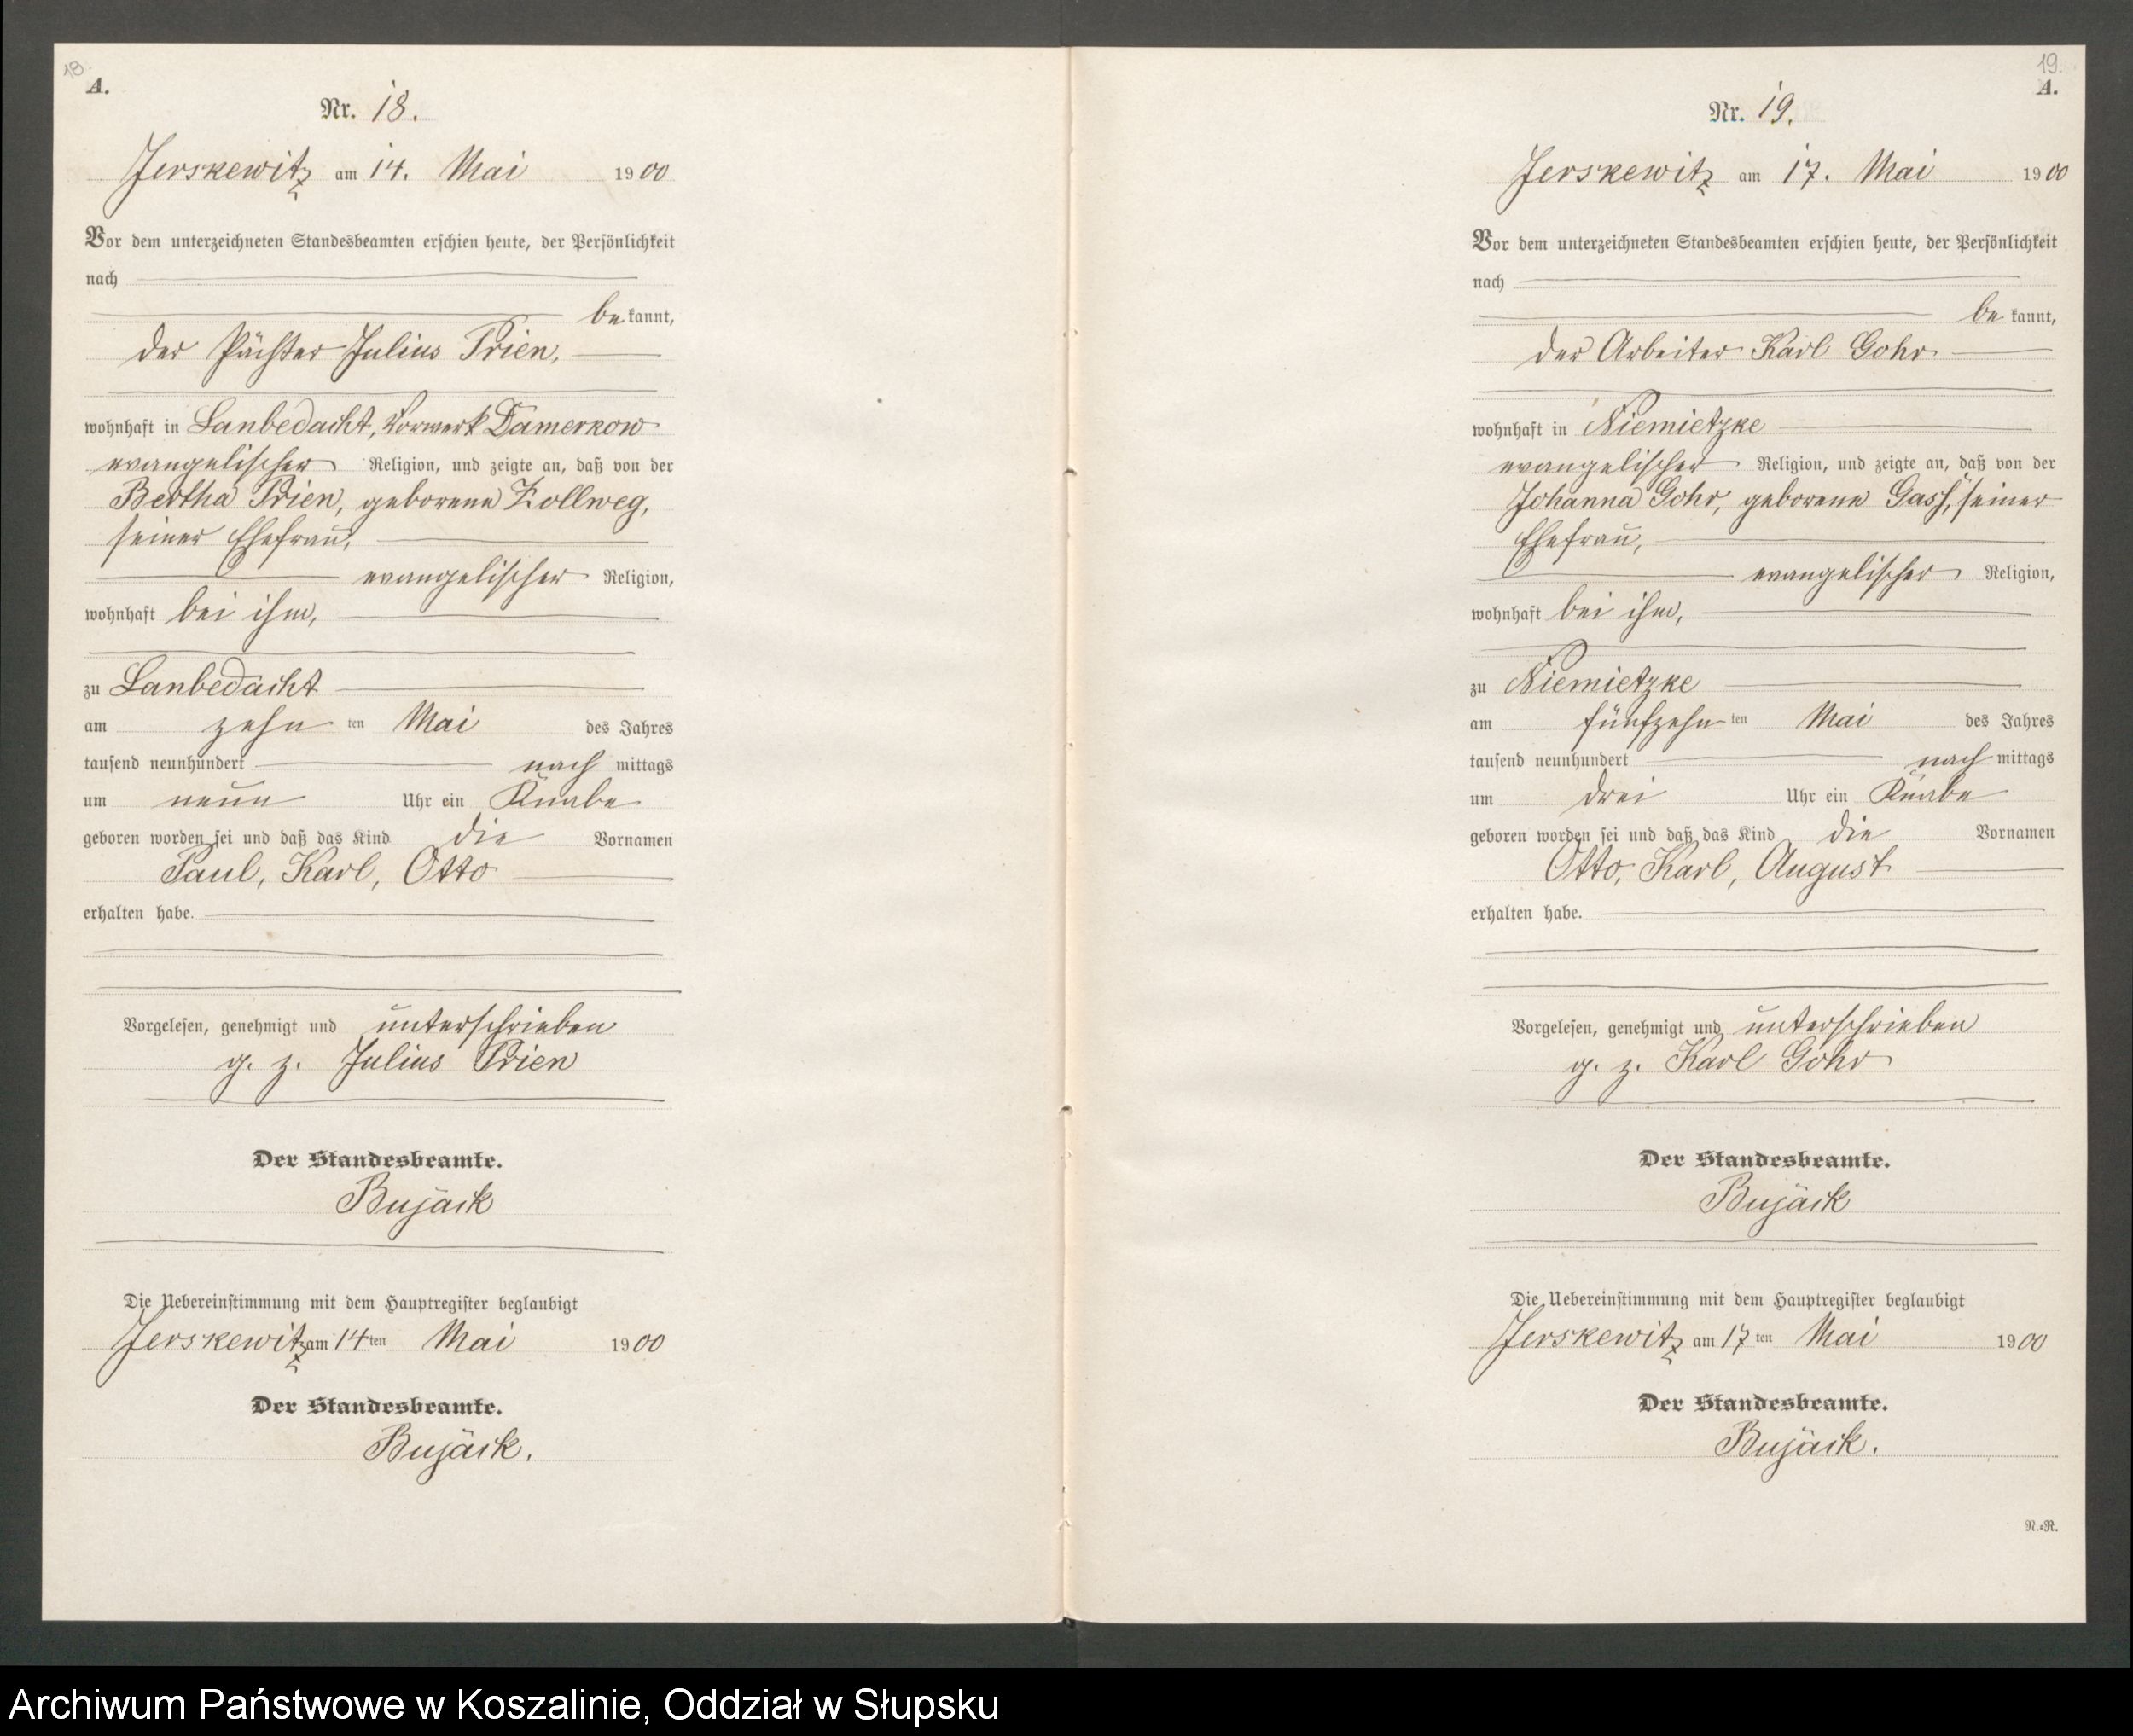 18.
A.
Nr. 18.
Jerskewitz am 14. Mai 1900
Vor dem unterzeichneten Standesbeamten erschien heute, der Persönlichkeit
nach
bekannt,
der Pächter Julius Prien,
wohnhaft in Lanbedacht, Vorwerk Damerkow
evangelischer Religion, und zeigte an, daß von der
Bertha Prien, geborene Zollweg,
seiner Ehefrau,
evangelischer Religion,
wohnhaft bei ihm,
zu Lanbedacht
am zehnten Mai des Jahres
tausend neunhundert nachmittags
um neun Uhr ein Knabe
geboren worden sei und daß das Kind die Vornamen
Paul, Karl, Otto
erhalten habe.
Vorgelesen, genehmigt und unterschrieben
g. z. Julius Prien
Der Standesbeamte.
Bujack
Die Uebereinstimmung mit dem Hauptregister beglaubigt
Jerskewitz am 14ten Mai 1900
Der Standesbeamte.
Bujack.
19.
A.
Nr. 19.
Jerskewitz am 17. Mai 1900
Vor dem unterzeichneten Standesbeamten erschien heute, der Persönlichkeit
nach
bekannt,
der Arbeiter Karl Gohr
wohnhaft in Niemietzke
evangelischer Religion, und zeigte an, daß von der
Johanna Gohr, geborene Gass, seiner
Ehefrau,
evangelischer Religion,
wohnhaft bei ihm,
zu Niemietzke
am fünfzehnten Mai des Jahres
tausend neunhundert nachmittags
um drei Uhr ein Knabe
geboren worden sei und daß das Kind die Vornamen
Otto, Karl, August
erhalten habe.
Vorgelesen, genehmigt und unterschrieben
g. z. Karl Gohr
Der Standesbeamte.
Bujack
Die Uebereinstimmung mit dem Hauptregister beglaubigt
Jerskewitz am 17ten Mai 1900
Der Standesbeamte.
Bujack.
N.=R.
Archiwum Państwowe w Koszalinie, Oddział w Słupsku